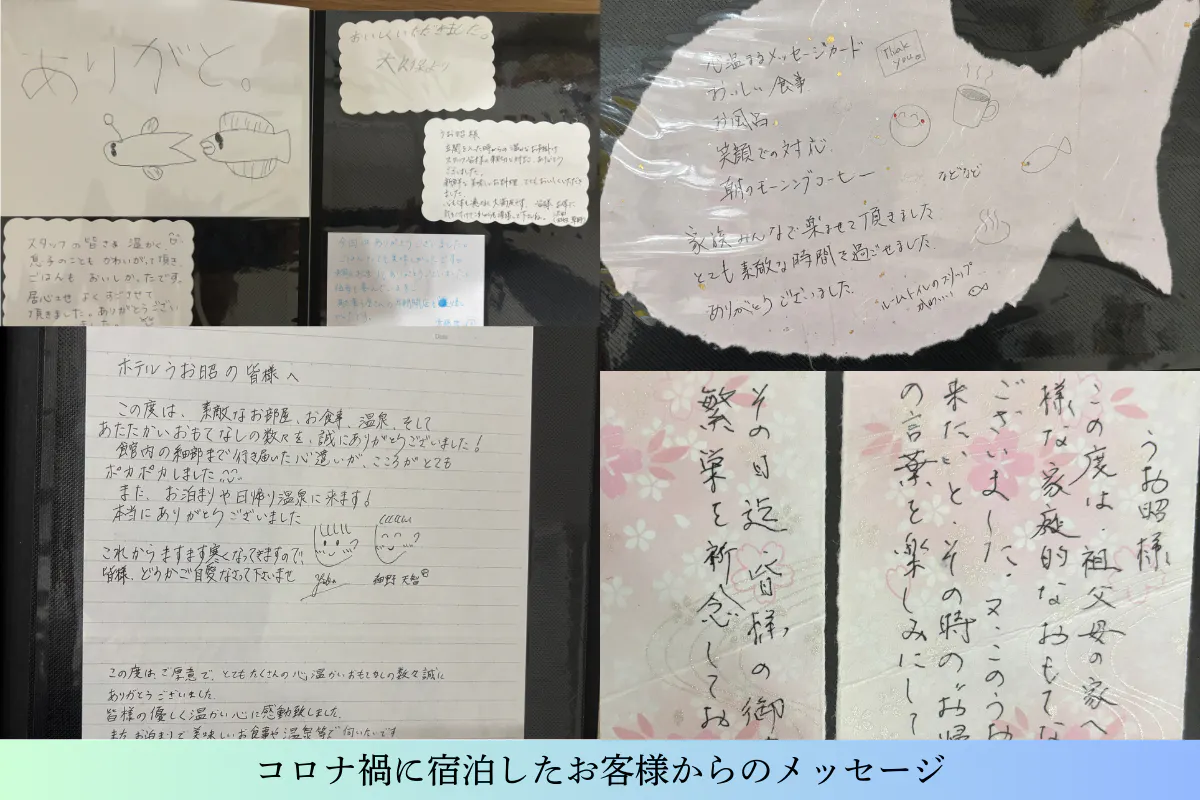 ありがと。
おいしくいただきました。
うお昭様
玄関を入った時からの温かなお声掛け
スタッフ皆様の親切な対応、ありがとう
ございました。
新鮮で美味しいお料理、とてもおいしくいただき
ました
スタッフの皆さま 温かく、
息子のことも かわいがって頂き
ごはんも おいしかったです。
居心地 よくすごさせて
頂きました。ありがとうござい
ました。
今回はありがとうございました。
心温まるメッセージカード
おいしい食事
お風呂
笑顔での対応
朝のモーニングコーヒー
などなど
Thank you
家族みんなで楽しませて頂きました
とても素敵な時間を過ごせました。
ありがとうございました。
ルームトイレのスリッパ
かわいい
ホテルうお昭の皆様へ
この度は、素敵なお部屋、お食事、温泉、そして
あたたかいおもてなしの数々を、誠にありがとうございました!
館内の細部まで行き届いた心遣いが、こころがとても
ポカポカしました
また、お泊まりや日帰り温泉に来ます!
本当にありがとうございました
これからますます寒くなってきますので、
皆様、どうかご自愛なさって下さいませ
この度は、ご厚意で、とてもたくさんの心温かいおもてなしの数々誠に
ありがとうございました。
皆様の優しく温かい心に感動致しました。
また お泊まりで美味しいお食事や温泉等で伺いたいです
うお昭様
この度は、祖父母の家へ
様な家庭的なおもてな
ございました。又、このうお
来たいと、その時のお帰
の言葉を楽しみにして
その日迄、皆様の御
繁栄を祈念してお
コロナ禍に宿泊したお客様からのメッセージ